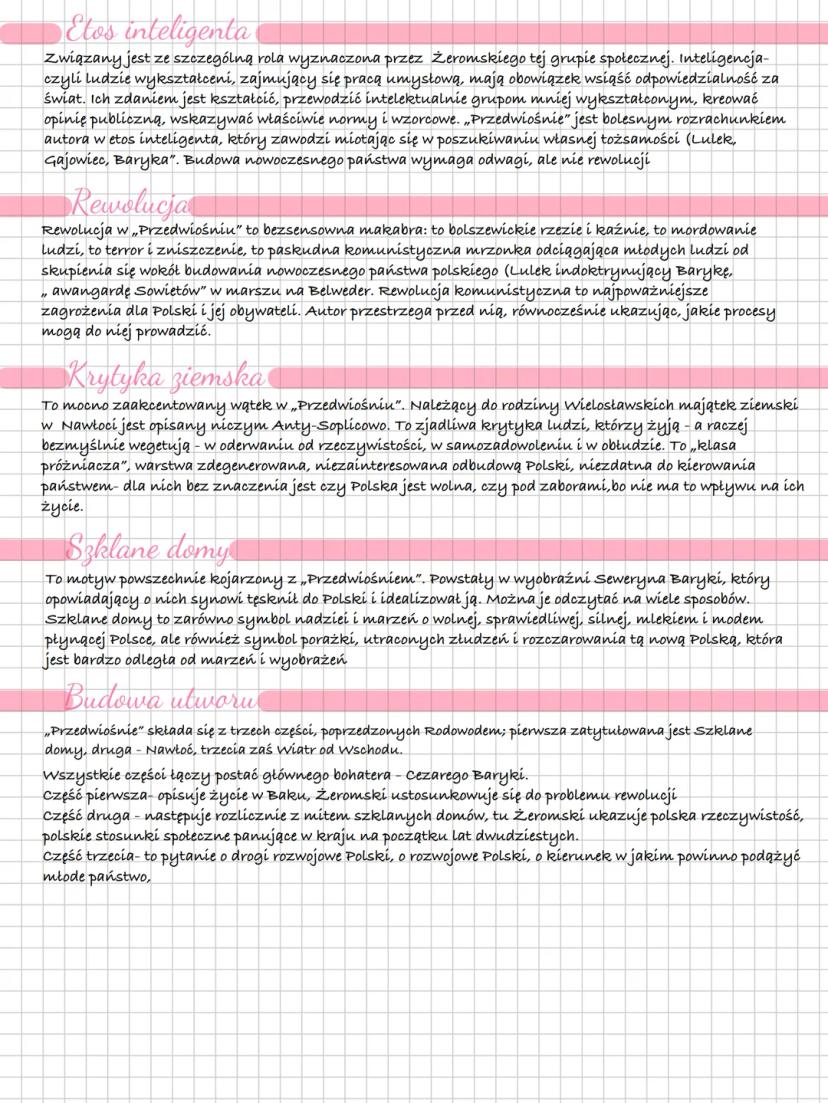 Etos inteligenta
Związany jest ze szczególną rola wyznaczona przez Żeromskiego tej grupie społecznej. Inteligencja-
czyli ludzie wykształceni, zajmujący się pracą umysłową, mają obowiązek wsiąść odpowiedzialność za
świat. Ich zdaniem jest kształcić, przewodzić intelektualnie grupom mniej wykształconym, kreować
opinię publiczną, wskazywać właściwie normy i wzorcowe. „Przedwiośnie” jest bolesnym rozrachunkiem
autora w etos inteligenta, który zawodzi miotając się w poszukiwaniu własnej tożsamości (Lulek,
Gajowiec, Baryka”. Budowa nowoczesnego państwa wymaga odwagi, ale nie rewolucji
Rewolucja
Rewolucja w „Przedwiośniu” to bezsensowna makabra: to bolszewickie rzezie i kaźnie, to mordowanie
ludzi, to terror i zniszczenie, to paskudna komunistyczna mrzonka odciągająca młodych ludzi od
skupienia się wokół budowania nowoczesnego państwa polskiego (Lulek indoktrynujący Barykę,
„ awangardę Sowietów” w marszu na Belweder. Rewolucja komunistyczna to najpoważniejsze
zagrożenia dla Polski i jej obywateli. Autor przestrzega przed nią, równocześnie ukazując, jakie procesy
mogą do niej prowadzić.
Krytyka ziemska
To mocno zaakcentowany wątek w „Przedwiośniu”. Należący do rodziny Wielosławskich majątek ziemski
w Nawłoci jest opisany niczym Anty-Soplicowo. To zjadliwa krytyka ludzi, którzy żyją - a raczej
bezmyślnie wegetują - w oderwaniu od rzeczywistości, w samozadowoleniu i w obłudzie. To „klasa
próżniacza”, warstwa zdegenerowana, niezainteresowana odbudową Polski, niezdatna do kierowania
państwem- dla nich bez znaczenia jest czy Polska jest wolna, czy pod zaborami,bo nie ma to wpływu na ich
życie.
Szklane domy
To motyw powszechnie kojarzony z „Przedwiośniem”. Powstały w wyobraźni Seweryna Baryki, który
opowiadający o nich synowi tęsknił do Polski i idealizował ją. Można je odczytać na wiele sposobów.
Szklane domy to zarówno symbol nadziei i marzeń o wolnej, sprawiedliwej, silnej, mlekiem i modem
płynącej Polsce, ale również symbol porażki, utraconych złudzeń i rozczarowania tą nową Polską, która
jest bardzo odległa od marzeń i wyobrażeń
Budowa utworu
„Przedwiośnie” składa się z trzech części, poprzedzonych Rodowodem; pierwsza zatytułowana jest Szklane
domy, druga - Nawłoć, trzecia zaś Wiatr od Wschodu.
Wszystkie części łączy postać głównego bohatera - Cezarego Baryki.
Część pierwsza- opisuje życie w Baku, Żeromski ustosunkowuje się do problemu rewolucji
Część druga - następuje rozlicznie z mitem szklanych domów, tu Żeromski ukazuje polska rzeczywistość,
polskie stosunki społeczne panujące w kraju na początku lat dwudziestych.
Część trzecia- to pytanie o drogi rozwojowe Polski, o rozwojowe Polski, o kierunek w jakim powinno podążyć
młode państwo,